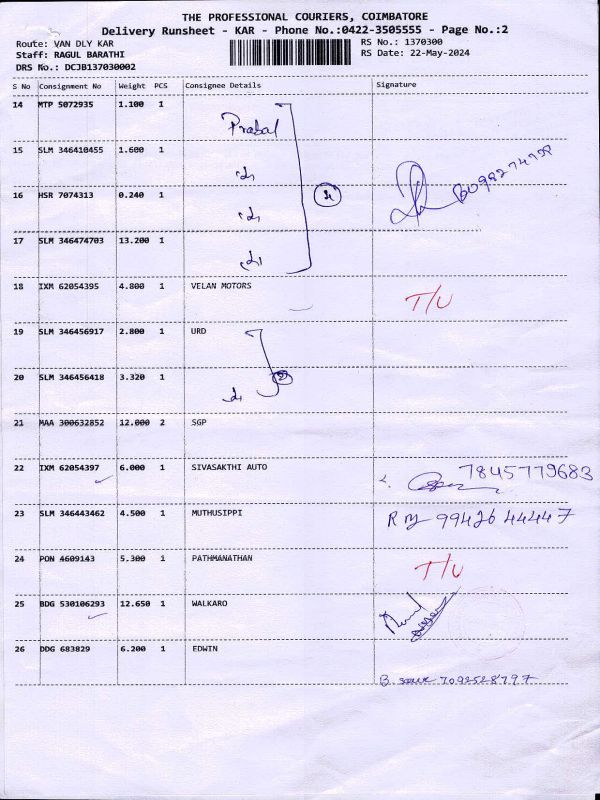 THE PROFESSIONAL COURIERS, COIMBATORE
Delivery Runsheet - KAR - Phone No.:0422-3505555 - Page No.:2
Route: VAN DLY KAR
Staff: RAGUL BARATHI
DRS No.: DCJB137030002
RS No.: 1370300
RS Date: 22-May-2024
S No Consignment No Weight PCS Consignee Details Signature
14 MTP 5072935 1.100 1
15 SLM 346410455 1.600 1
16 HSR 7074313 0.240 1
17 SLM 346474703 13.200 1
18 IXM 62054395 4.800 1 VELAN MOTORS T/U
19 SLM 346456917 2.800 1 URD
20 SLM 346456418 3.320 1
21 MAA 300632852 12.000 2 SGP
22 IXM 62054397 6.000 1 SIVASAKTHI AUTO 7845779683
23 SLM 346443462 4.500 1 MUTHUSIPPI 9942644447
24 PON 4609143 5.300 1 PATHMANATHAN T/U
25 BDG 530106293 12.650 1 WALKARO
26 DDG 683829 6.200 1 EDWIN
7092528797